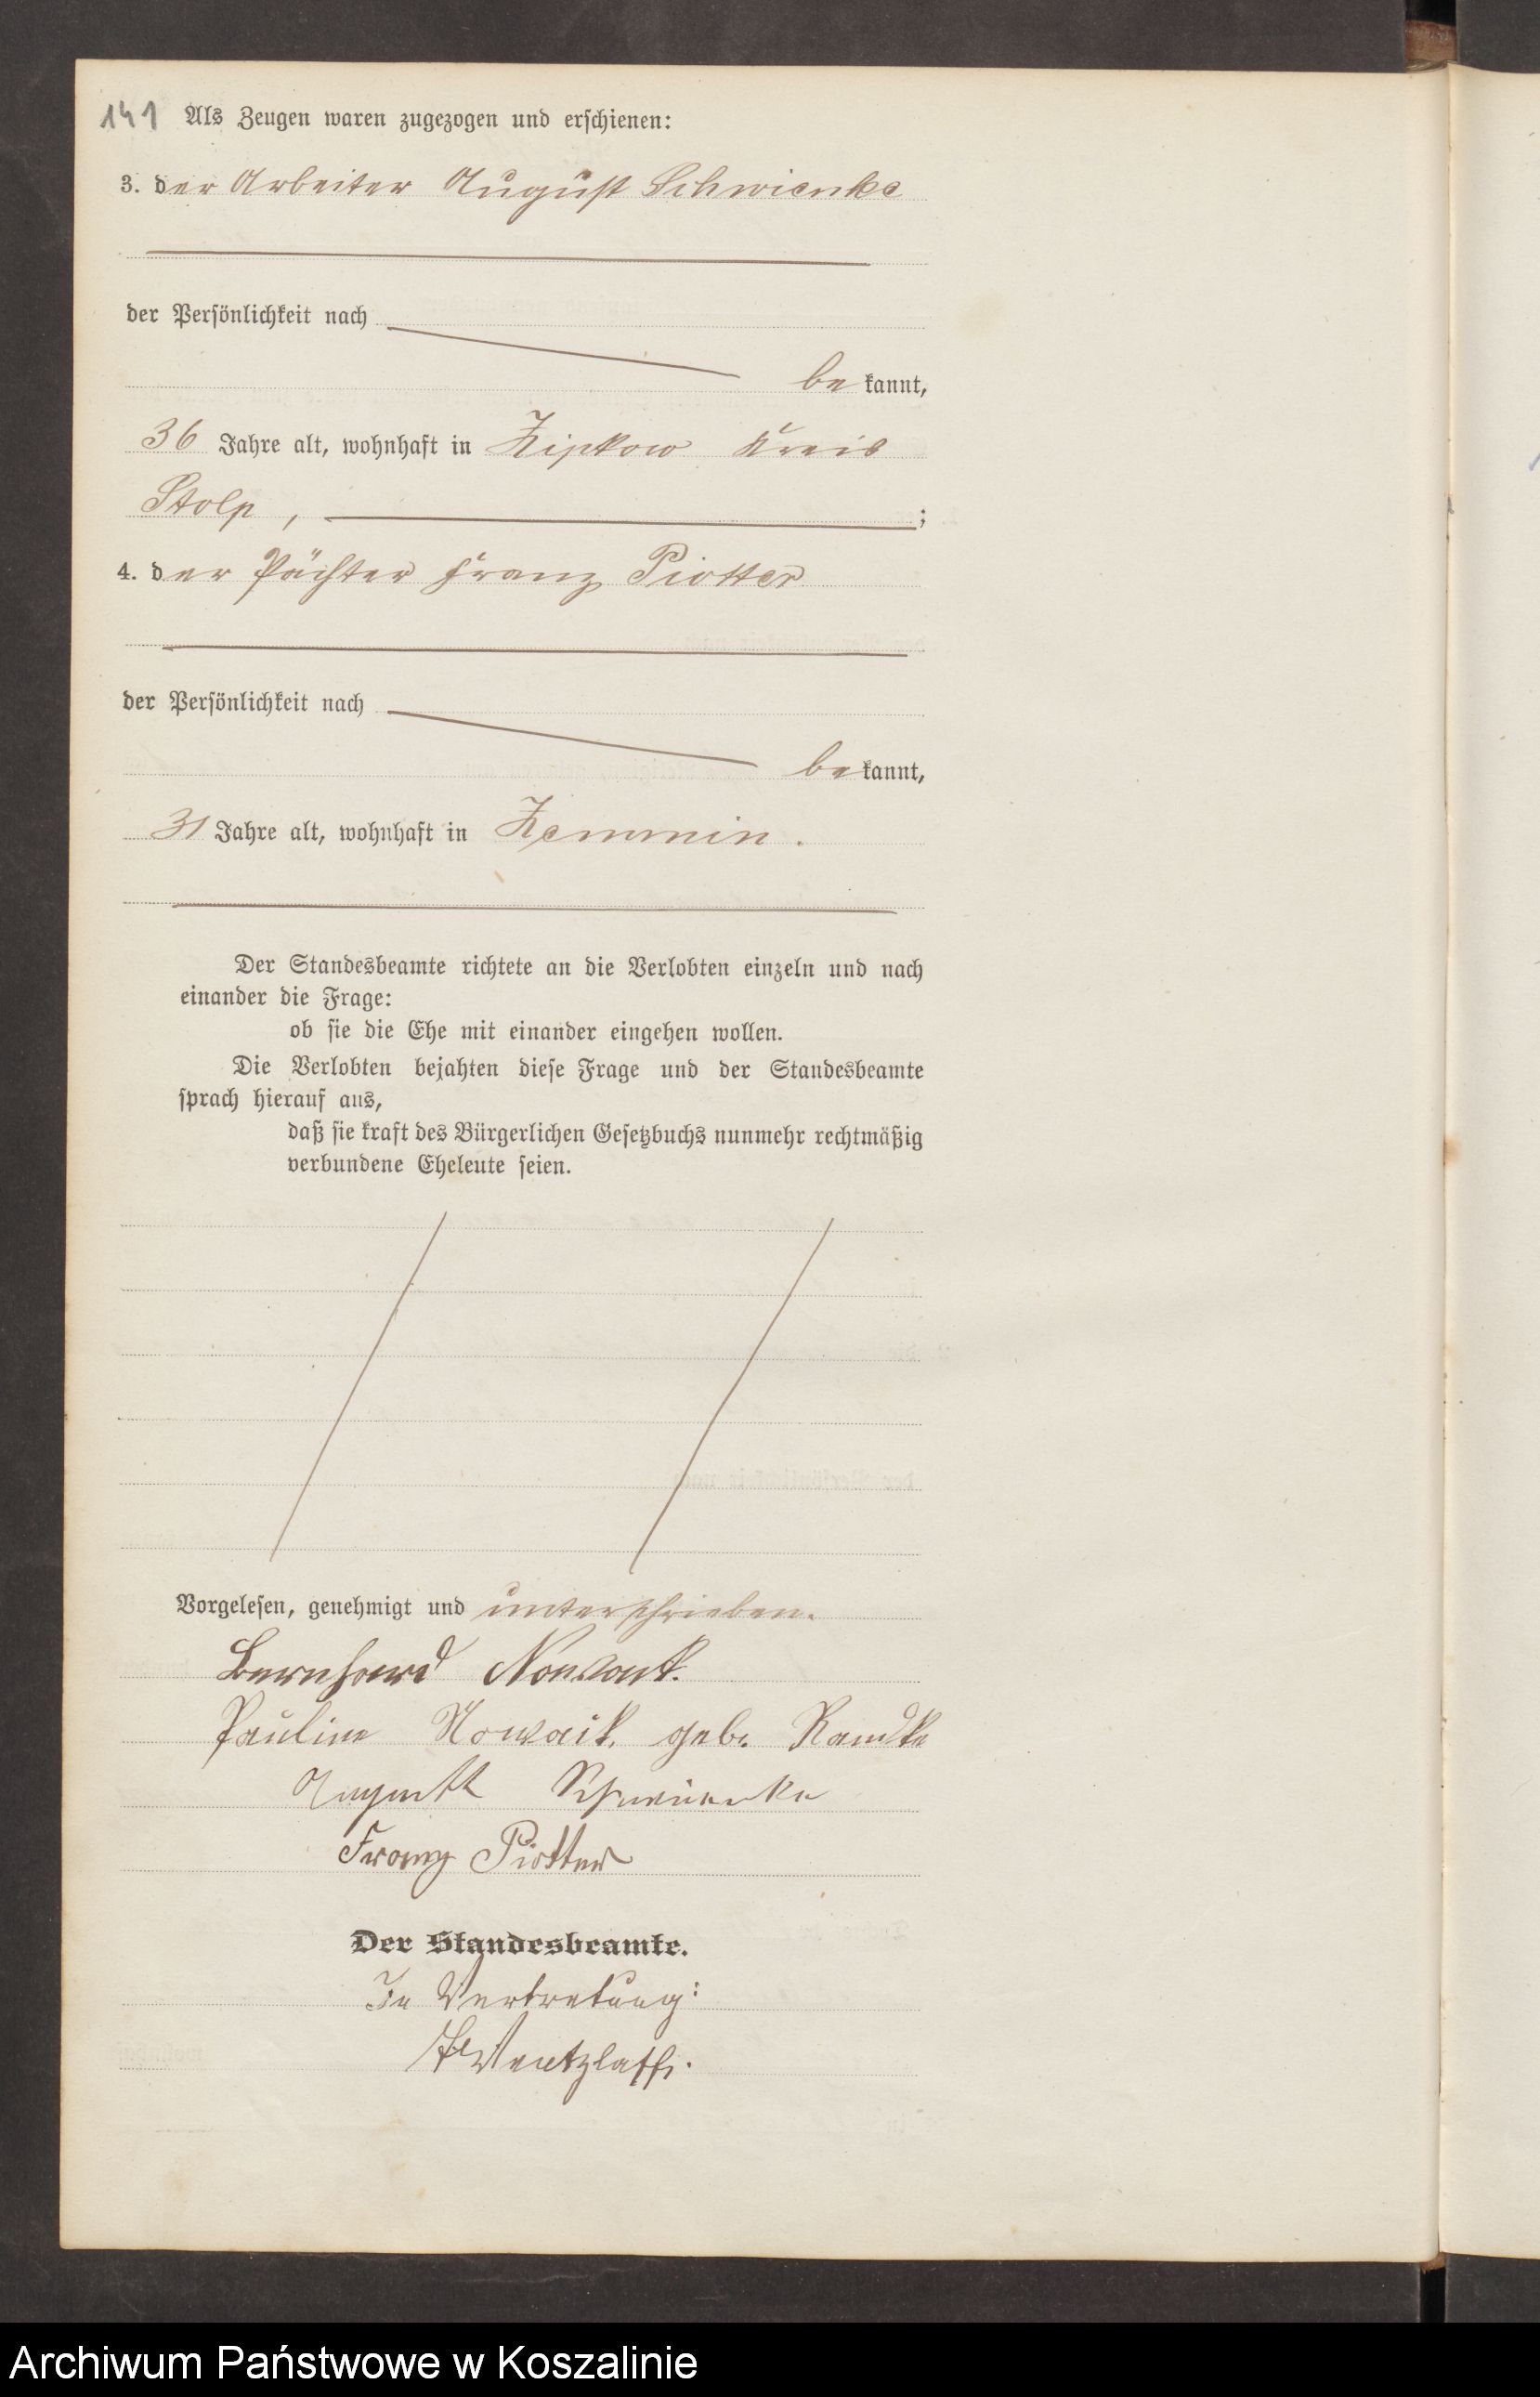 141 Als Zeugen waren zugezogen und erschienen:
3. der Arbeiter August Schwienke
der Persönlichkeit nach
be kannt,
36 Jahre alt, wohnhaft in Zipkow Kreis
Stolp, ;
4. der Pächter Franz Piotter
der Persönlichkeit nach
be kannt,
31 Jahre alt, wohnhaft in Zemmin.
Der Standesbeamte richtete an die Verlobten einzeln und nach
einander die Frage:
ob sie die Ehe mit einander eingehen wollen.
Die Verlobten bejahten diese Frage und der Standesbeamte
sprach hierauf aus,
daß sie kraft des Bürgerlichen Gesetzbuchs nunmehr rechtmäßig
verbundene Eheleute seien.
Vorgelesen, genehmigt und unterschrieben.
Bernhard
Pauline geb. Ramdke
August Schwienke
Franz Piotter
Der Standesbeamte.
In Vertretung:
Wentzlaff.
Archiwum Państwowe w Koszalinie